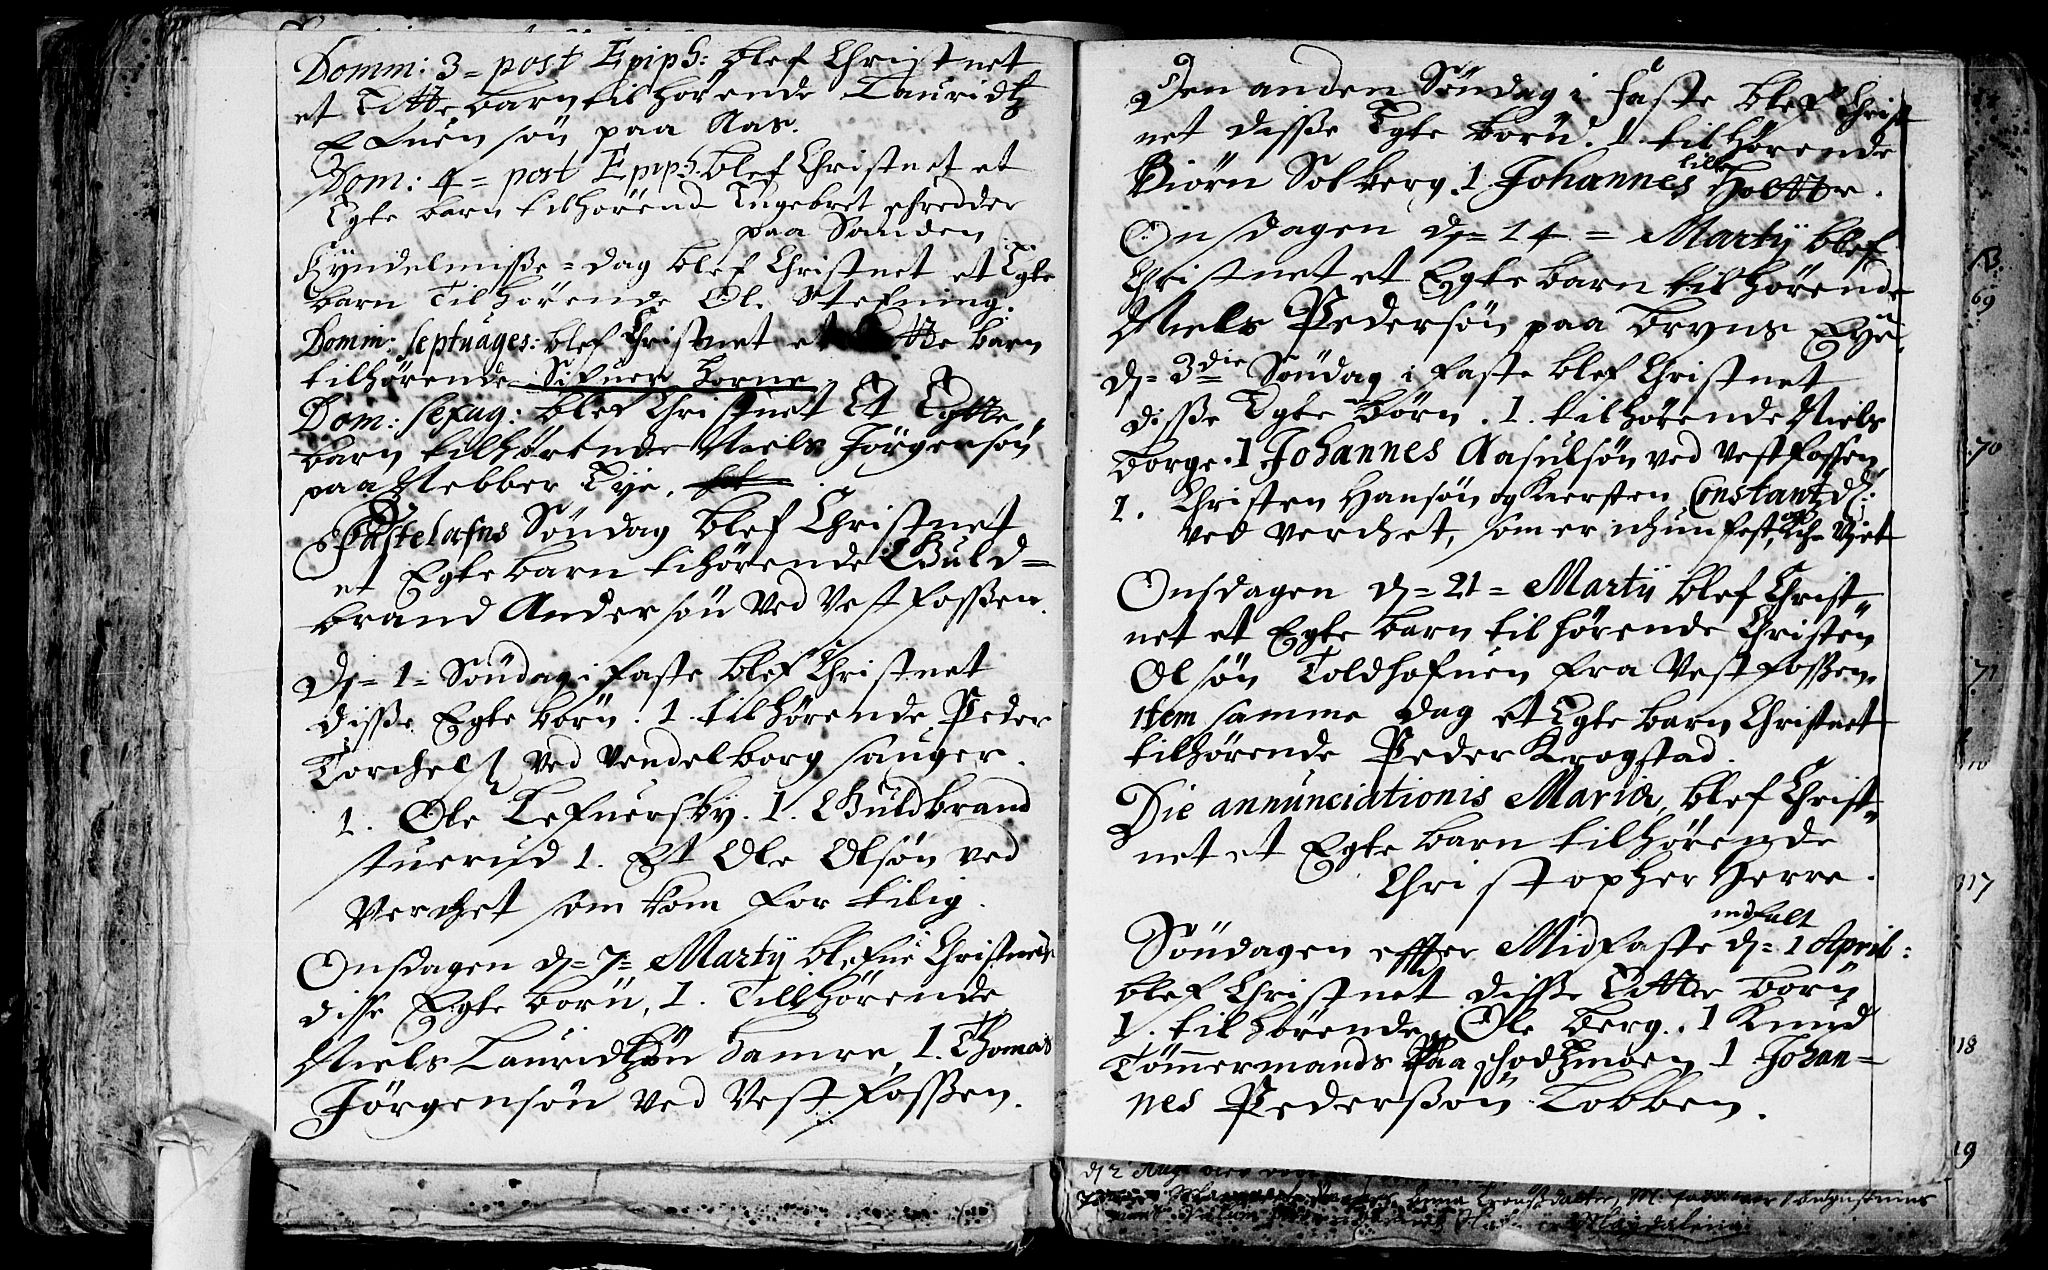 Domm: 3 = post Epiph: blef Christnet
et Ectte barn til hørende Lauridtz
Efuensøn paa Aas.
Dom: 4 = post Epiph: blef Christnet et
Egte barn tilhørend Engebret
paa Sanden
Kyndelmisse = dag blef Christnet et Egte
barn Tilhørende Ole Stefning.
Domm: septuages: blef Christnet et Ectte barn
tilhørende Sifuer Borne
Dom: sexag: blef Christnet Et Egtte
barn tilhørende Niels Jørgensøn
paa Nebber Eye.
Fastelafns Søndag blef Christnet
et Egte barn tihørende Guld=
brand Andersøn ved Vestfossen.
Dn= 1= Søndag i faste blef Christnet
disse Egte børn. 1. tilhørende Peder
Torchels ved Vendelborg sauger.
1. Ole Lefuersby. 1. Guldbrand
stuerud 1. Et Ole Olsøn ved
Verchet som kom for tilig.
Onsdagen dn= 7= Martij blefue Christnede
disse Egte børn, 1. Tillhørende
Niels Lauridtzøn Damre, 1. Thomas
Jørgensøn ved Vestfossen.
Den anden Søndag i faste blef Christ
net disse Egte børn. 1 tilhørende
Biørn Solberg. 1 Johannes lille Holtte.
Onsdagen dn= 14 = Martij blef
Christnet et Egte barn tilhørende
Niels Pedersøn paa Bryns Eye.
dn= 3die Søndag i faste blef Christnet
disse Egte børn. 1. tilhørende Niels
Borge. 1 Johannes Aasulsøn ved Vestfossen
1. Christen Hansøn og Kiersten Constantz d:
ved verchet, som er
Onsdagen dn= 21 = Martij blef Christ
net et Egte barn tilhørende Christen
Olsøn Toldhofuen fra Vestfossen.
Item samme dag et Egte barn Christnet
tilhørende Peder Krogstad.
Die annunciationis Mariæ, blef Christ=
net et Egte barn tilhørende
Christopher Herre.
Søndagen effter Midfaste indfalt dn= 1 April:
blef Christnet disse Ectte børn
1. tilhørende Ole Berg. 1 Knud
Tømmermands paa 1 Johan=
nes Pedersøn Lobben.
dn 2 Aug:
Magdalena
69
70
71
317
18
19